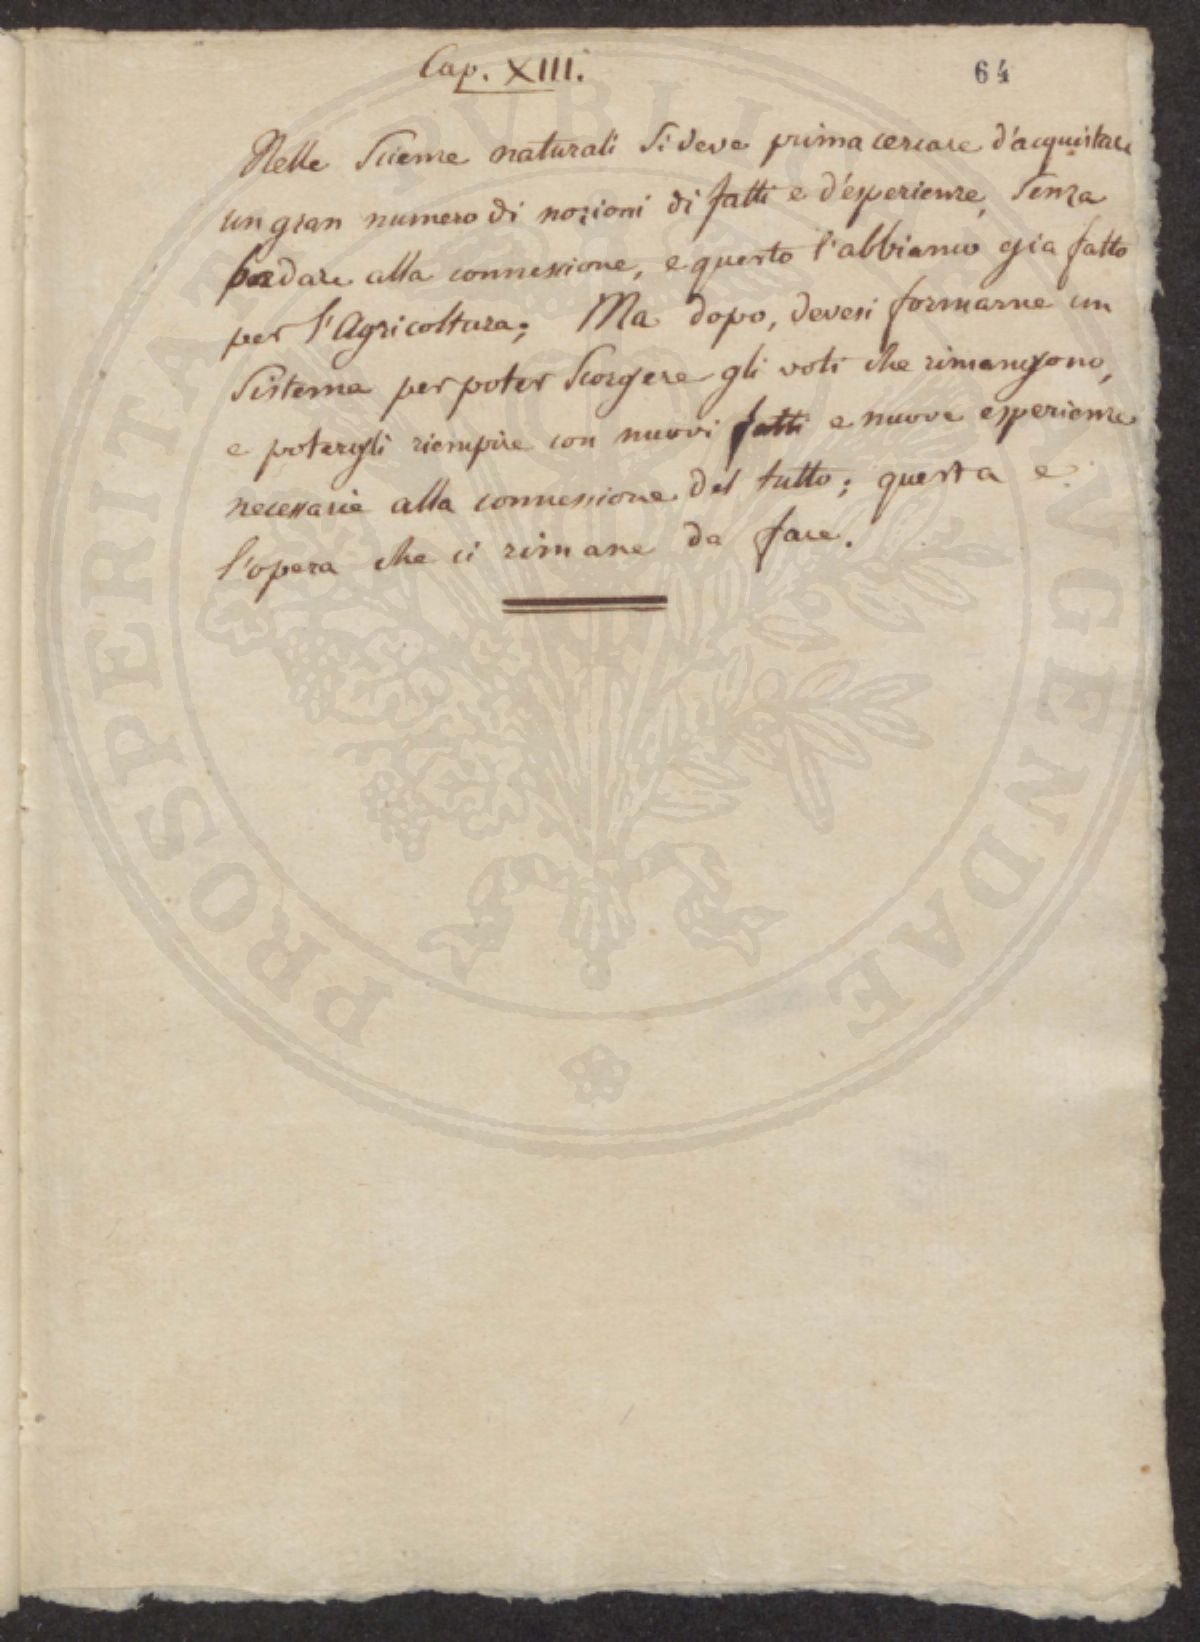 Cap. XIII.
64
Nelle Scienze naturali Si deve prima cercare d'acquistare
un gran numero di nozioni di fatti e d'esperienze, Senza
badare alla connessione, e questo l'abbiamo gia fatto
per l'Agricoltura; Ma dopo, devesi formarne un
Sistema per poter Scorgere gli voti che rimangono,
e potergli riempire con nuovi fatti e nuove esperienze
necessarie alla connessione del tutto; questa e
l'opera che ci rimane da fare.
PUBLICAE PROSPERITATI AUGENDAE